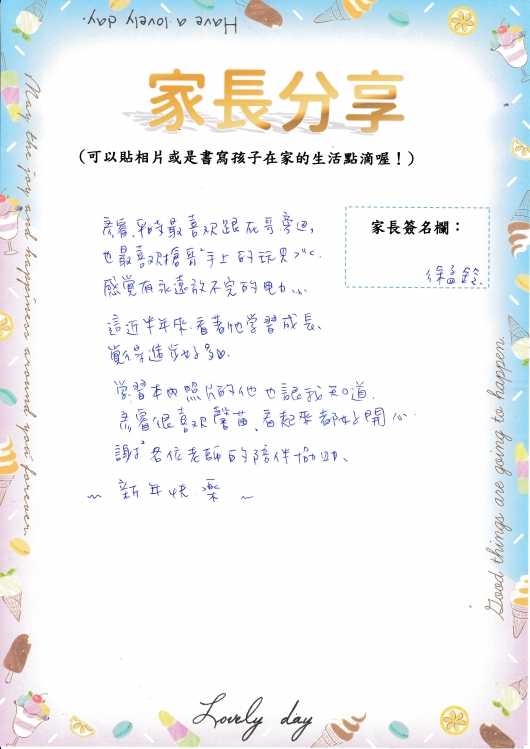 Have a lovely day.
家長分享
(可以貼相片或是書寫孩子在家的生活點滴喔！)
家長簽名欄：
睿平時最喜欢跟在哥旁边,
也最喜欢搶哥哥手上的玩具
感覺有永遠放不完的电力
這近半年來.看著他學習成長、
覺得進步好多
學習本內照片的他也讓我知道.
睿很喜欢馨苗、看起來都好開心.
謝謝各位老師的陪伴協助、
~ 新年快樂 ~
May the joy and happiness around you forever.
Good things are going to happen.
Lovely day